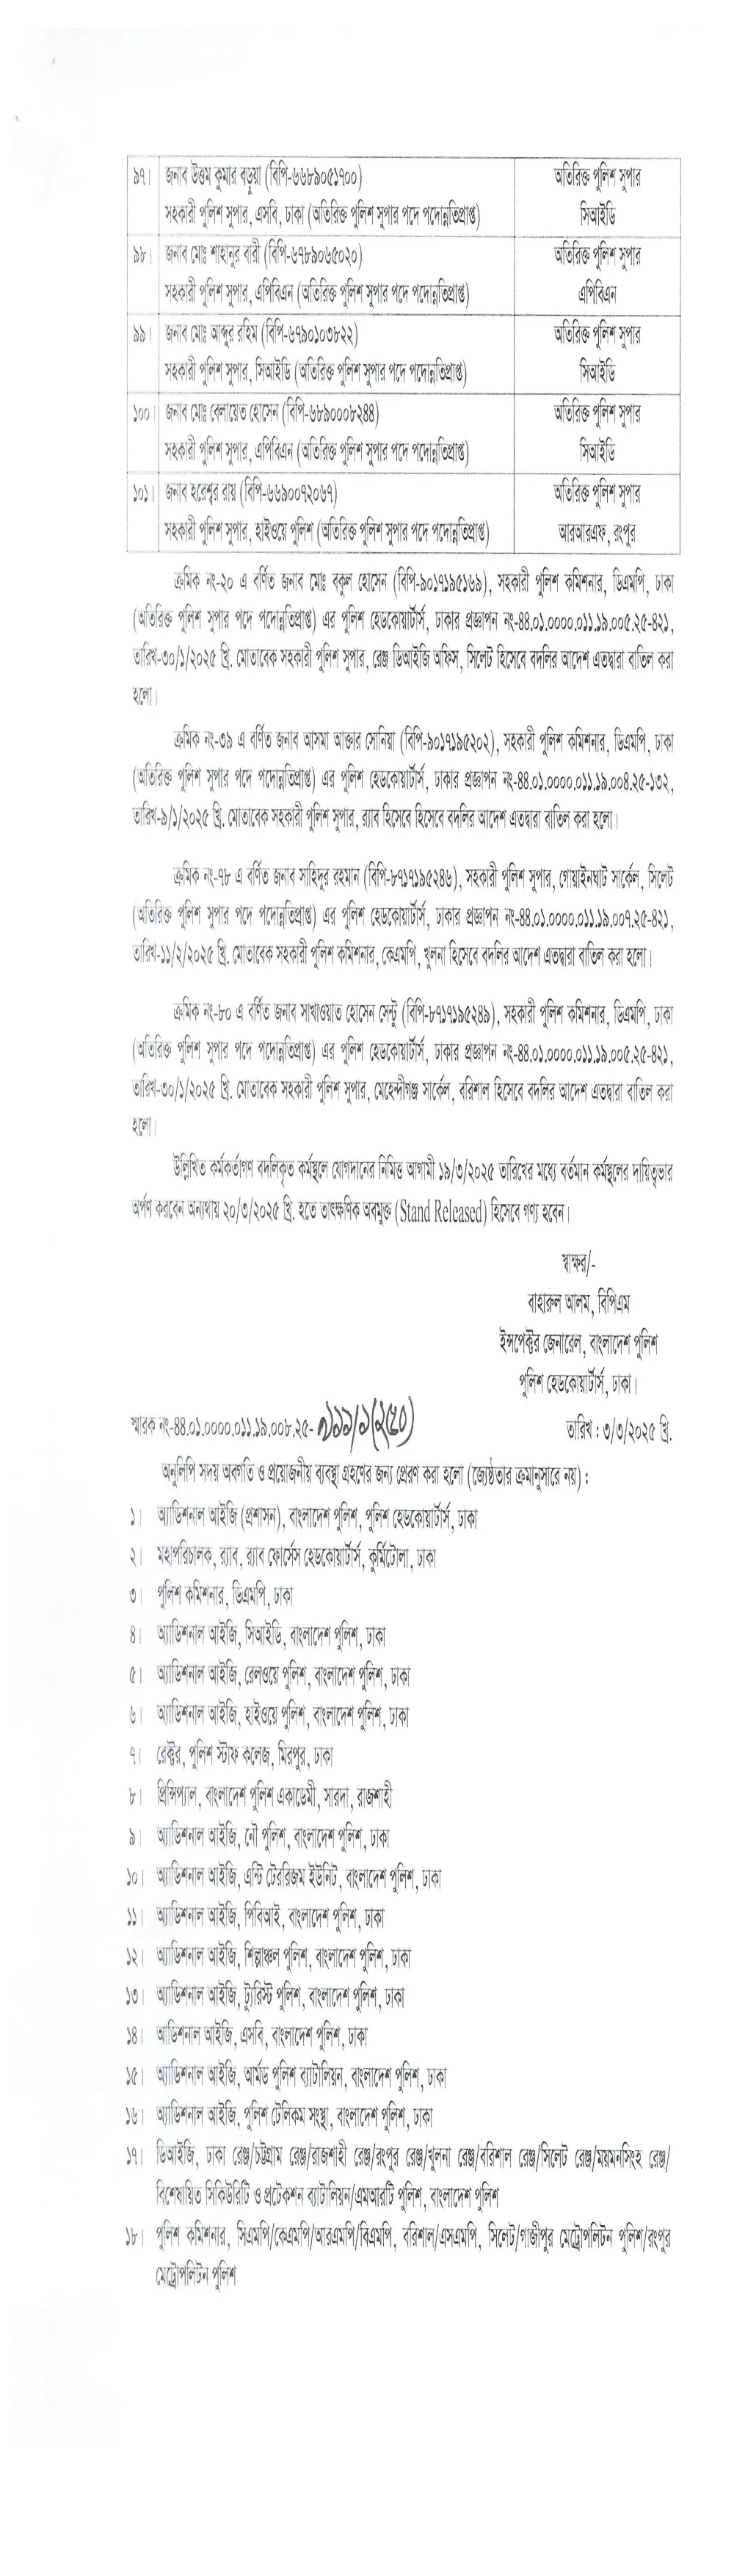 ৯৭। জনাব উত্তম কুমার বড়ুয়া (বিপি-৬৬৮৯০৫১৭০০) অতিরিক্ত পুলিশ সুপার
সহকারী পুলিশ সুপার, এসবি, ঢাকা (অতিরিক্ত পুলিশ সুপার পদে পদোন্নতিপ্রাপ্ত) সিআইডি
৯৮। জনাব মোঃ শাহানুর বারী (বিপি-৬৭৮৯০৬৫০২০) অতিরিক্ত পুলিশ সুপার
সহকারী পুলিশ সুপার, এপিবিএন (অতিরিক্ত পুলিশ সুপার পদে পদোন্নতিপ্রাপ্ত) এপিবিএন
৯৯। জনাব মোঃ আব্দুর রহিম (বিপি-৬৭৯০১০৩৮২২) অতিরিক্ত পুলিশ সুপার
সহকারী পুলিশ সুপার, সিআইডি (অতিরিক্ত পুলিশ সুপার পদে পদোন্নতিপ্রাপ্ত) সিআইডি
১০০। জনাব মোঃ বেলায়েত হোসেন (বিপি-৬৮৯০০০৮২৪৪) অতিরিক্ত পুলিশ সুপার
সহকারী পুলিশ সুপার, এপিবিএন (অতিরিক্ত পুলিশ সুপার পদে পদোন্নতিপ্রাপ্ত) সিআইডি
১০১। জনাব হরেশ্বর রায় (বিপি-৬৬৯০০৭২০৬৭) অতিরিক্ত পুলিশ সুপার
সহকারী পুলিশ সুপার, হাইওয়ে পুলিশ (অতিরিক্ত পুলিশ সুপার পদে পদোন্নতিপ্রাপ্ত) আরআরএফ, রংপুর
ক্রমিক নং-২০ এ বর্ণিত জনাব মোঃ বকুল হোসেন (বিপি-৯০১৭১৯৫১৬৯), সহকারী পুলিশ কমিশনার, ডিএমপি, ঢাকা
(অতিরিক্ত পুলিশ সুপার পদে পদোন্নতিপ্রাপ্ত) এর পুলিশ হেডকোয়ার্টার্স, ঢাকার প্রজ্ঞাপন নং-৪৪.০১.০০০০.০১১.১৯.০০৫.২৫-৪২১,
তারিখ-৩০/১/২০২৫ খ্রি. মোতাবেক সহকারী পুলিশ সুপার, রেঞ্জ ডিআইজি অফিস, সিলেট হিসেবে বদলির আদেশ এতদ্বারা বাতিল করা
হলো।
ক্রমিক নং-৩৯ এ বর্ণিত জনাব আসমা আক্তার সোনিয়া (বিপি-৯০১৭১৯৫২০২), সহকারী পুলিশ কমিশনার, ডিএমপি, ঢাকা
(অতিরিক্ত পুলিশ সুপার পদে পদোন্নতিপ্রাপ্ত) এর পুলিশ হেডকোয়ার্টার্স, ঢাকার প্রজ্ঞাপন নং-৪৪.০১.০০০০.০১১.১৯.০০৪.২৫-১৩২,
তারিখ-৯/১/২০২৫ খ্রি. মোতাবেক সহকারী পুলিশ সুপার, র‌্যাব হিসেবে হিসেবে বদলির আদেশ এতদ্বারা বাতিল করা হলো।
ক্রমিক নং-৭৮ এ বর্ণিত জনাব সাহিদুর রহমান (বিপি-৮৭১৭১৯৫২৪৬), সহকারী পুলিশ সুপার, গোয়াইনঘাট সার্কেল, সিলেট
(অতিরিক্ত পুলিশ সুপার পদে পদোন্নতিপ্রাপ্ত) এর পুলিশ হেডকোয়ার্টার্স, ঢাকার প্রজ্ঞাপন নং-৪৪.০১.০০০০.০১১.১৯.০০৭.২৫-৪২১,
তারিখ-১১/২/২০২৫ খ্রি. মোতাবেক সহকারী পুলিশ কমিশনার, কেএমপি, খুলনা হিসেবে বদলির আদেশ এতদ্বারা বাতিল করা হলো।
ক্রমিক নং-৮০ এ বর্ণিত জনাব সাখাওয়াত হোসেন সেন্টু (বিপি-৮৭১৭১৯৫২৪৯), সহকারী পুলিশ কমিশনার, ডিএমপি, ঢাকা
(অতিরিক্ত পুলিশ সুপার পদে পদোন্নতিপ্রাপ্ত) এর পুলিশ হেডকোয়ার্টার্স, ঢাকার প্রজ্ঞাপন নং-৪৪.০১.০০০০.০১১.১৯.০০৫.২৫-৪২১,
তারিখ-৩০/১/২০২৫ খ্রি. মোতাবেক সহকারী পুলিশ সুপার, মেহেন্দীগঞ্জ সার্কেল, বরিশাল হিসেবে বদলির আদেশ এতদ্বারা বাতিল করা
হলো।
উল্লিখিত কর্মকর্তাগণ বদলিকৃত কর্মস্থলে যোগদানের নিমিত্ত আগামী ১৯/৩/২০২৫ তারিখের মধ্যে বর্তমান কর্মস্থলের দায়িত্বভার
অর্পণ করবেন অন্যথায় ২০/৩/২০২৫ খ্রি. হতে তাৎক্ষণিক অবমুক্ত (Stand Released) হিসেবে গণ্য হবেন।
স্বাক্ষর/-
বাহারুল আলম, বিপিএম
ইন্সপেক্টর জেনারেল, বাংলাদেশ পুলিশ
পুলিশ হেডকোয়ার্টার্স, ঢাকা।
স্মারক নং-৪৪.০১.০০০০.০১১.১৯.০০৮.২৫- তারিখ : ৩/৩/২০২৫ খ্রি.
অনুলিপি সদয় অবগতি ও প্রয়োজনীয় ব্যবস্থা গ্রহণের জন্য প্রেরণ করা হলো (জ্যেষ্ঠতার ক্রমানুসারে নয়) :
১। অ্যাডিশনাল আইজি (প্রশাসন), বাংলাদেশ পুলিশ, পুলিশ হেডকোয়ার্টার্স, ঢাকা
২। মহাপরিচালক, র‌্যাব, র‌্যাব ফোর্সেস হেডকোয়ার্টার্স, কুর্মিটোলা, ঢাকা
৩। পুলিশ কমিশনার, ডিএমপি, ঢাকা
৪। অ্যাডিশনাল আইজি, সিআইডি, বাংলাদেশ পুলিশ, ঢাকা
৫। অ্যাডিশনাল আইজি, রেলওয়ে পুলিশ, বাংলাদেশ পুলিশ, ঢাকা
৬। অ্যাডিশনাল আইজি, হাইওয়ে পুলিশ, বাংলাদেশ পুলিশ, ঢাকা
৭। রেক্টর, পুলিশ স্টাফ কলেজ, মিরপুর, ঢাকা
৮। প্রিন্সিপ্যাল, বাংলাদেশ পুলিশ একাডেমী, সারদা, রাজশাহী
৯। অ্যাডিশনাল আইজি, নৌ পুলিশ, বাংলাদেশ পুলিশ, ঢাকা
১০। অ্যাডিশনাল আইজি, এন্টি টেররিজম ইউনিট, বাংলাদেশ পুলিশ, ঢাকা
১১। অ্যাডিশনাল আইজি, পিবিআই, বাংলাদেশ পুলিশ, ঢাকা
১২। অ্যাডিশনাল আইজি, শিল্পাঞ্চল পুলিশ, বাংলাদেশ পুলিশ, ঢাকা
১৩। অ্যাডিশনাল আইজি, ট্যুরিস্ট পুলিশ, বাংলাদেশ পুলিশ, ঢাকা
১৪। অডিশনাল আইজি, এসবি, বাংলাদেশ পুলিশ, ঢাকা
১৫। অ্যাডিশনাল আইজি, আর্মড পুলিশ ব্যাটালিয়ন, বাংলাদেশ পুলিশ, ঢাকা
১৬। অ্যাডিশনাল আইজি, পুলিশ টেলিকম সংস্থা, বাংলাদেশ পুলিশ, ঢাকা
১৭। ডিআইজি, ঢাকা রেঞ্জ/চট্টগ্রাম রেঞ্জ/রাজশাহী রেঞ্জ/রংপুর রেঞ্জ/খুলনা রেঞ্জ/বরিশাল রেঞ্জ/সিলেট রেঞ্জ/ময়মনসিংহ রেঞ্জ/
বিশেষায়িত সিকিউরিটি ও প্রটেকশন ব্যাটালিয়ন/এমআরটি পুলিশ, বাংলাদেশ পুলিশ
১৮। পুলিশ কমিশনার, সিএমপি/কেএমপি/আরএমপি/বিএমপি, বরিশাল/এসএমপি, সিলেট/গাজীপুর মেট্রোপলিটন পুলিশ/রংপুর
মেট্রোপলিটন পুলিশ